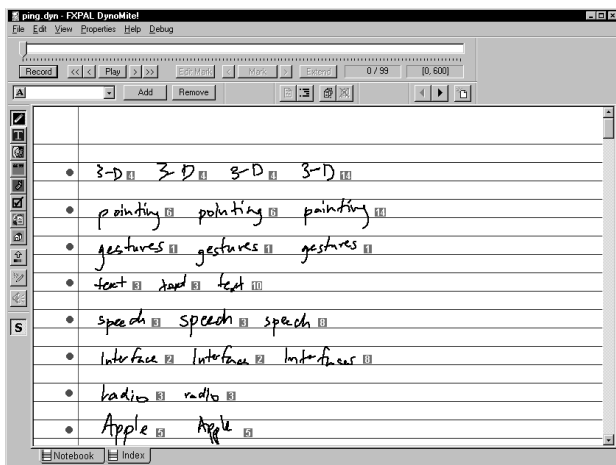 ping.dyn - FXPAL DynoMite!
File Edit View Properties Help Debug
Record << < Play > >> Edit Mark < Mark > Extend 0 / 99 [0, 600]
A Add Remove
3-D 4 3-D 4 3-D 4 3-D 14
pointing 6 pointing 6 pointing 14
gestures 1 gestures 1 gestures 1
text 3 text 3 text 10
speech 3 speech 3 speech 8
Interface 2 Interface 2 Interfaces 8
radio 3 radio 3
Apple 5 Apple 5
S
Notebook Index